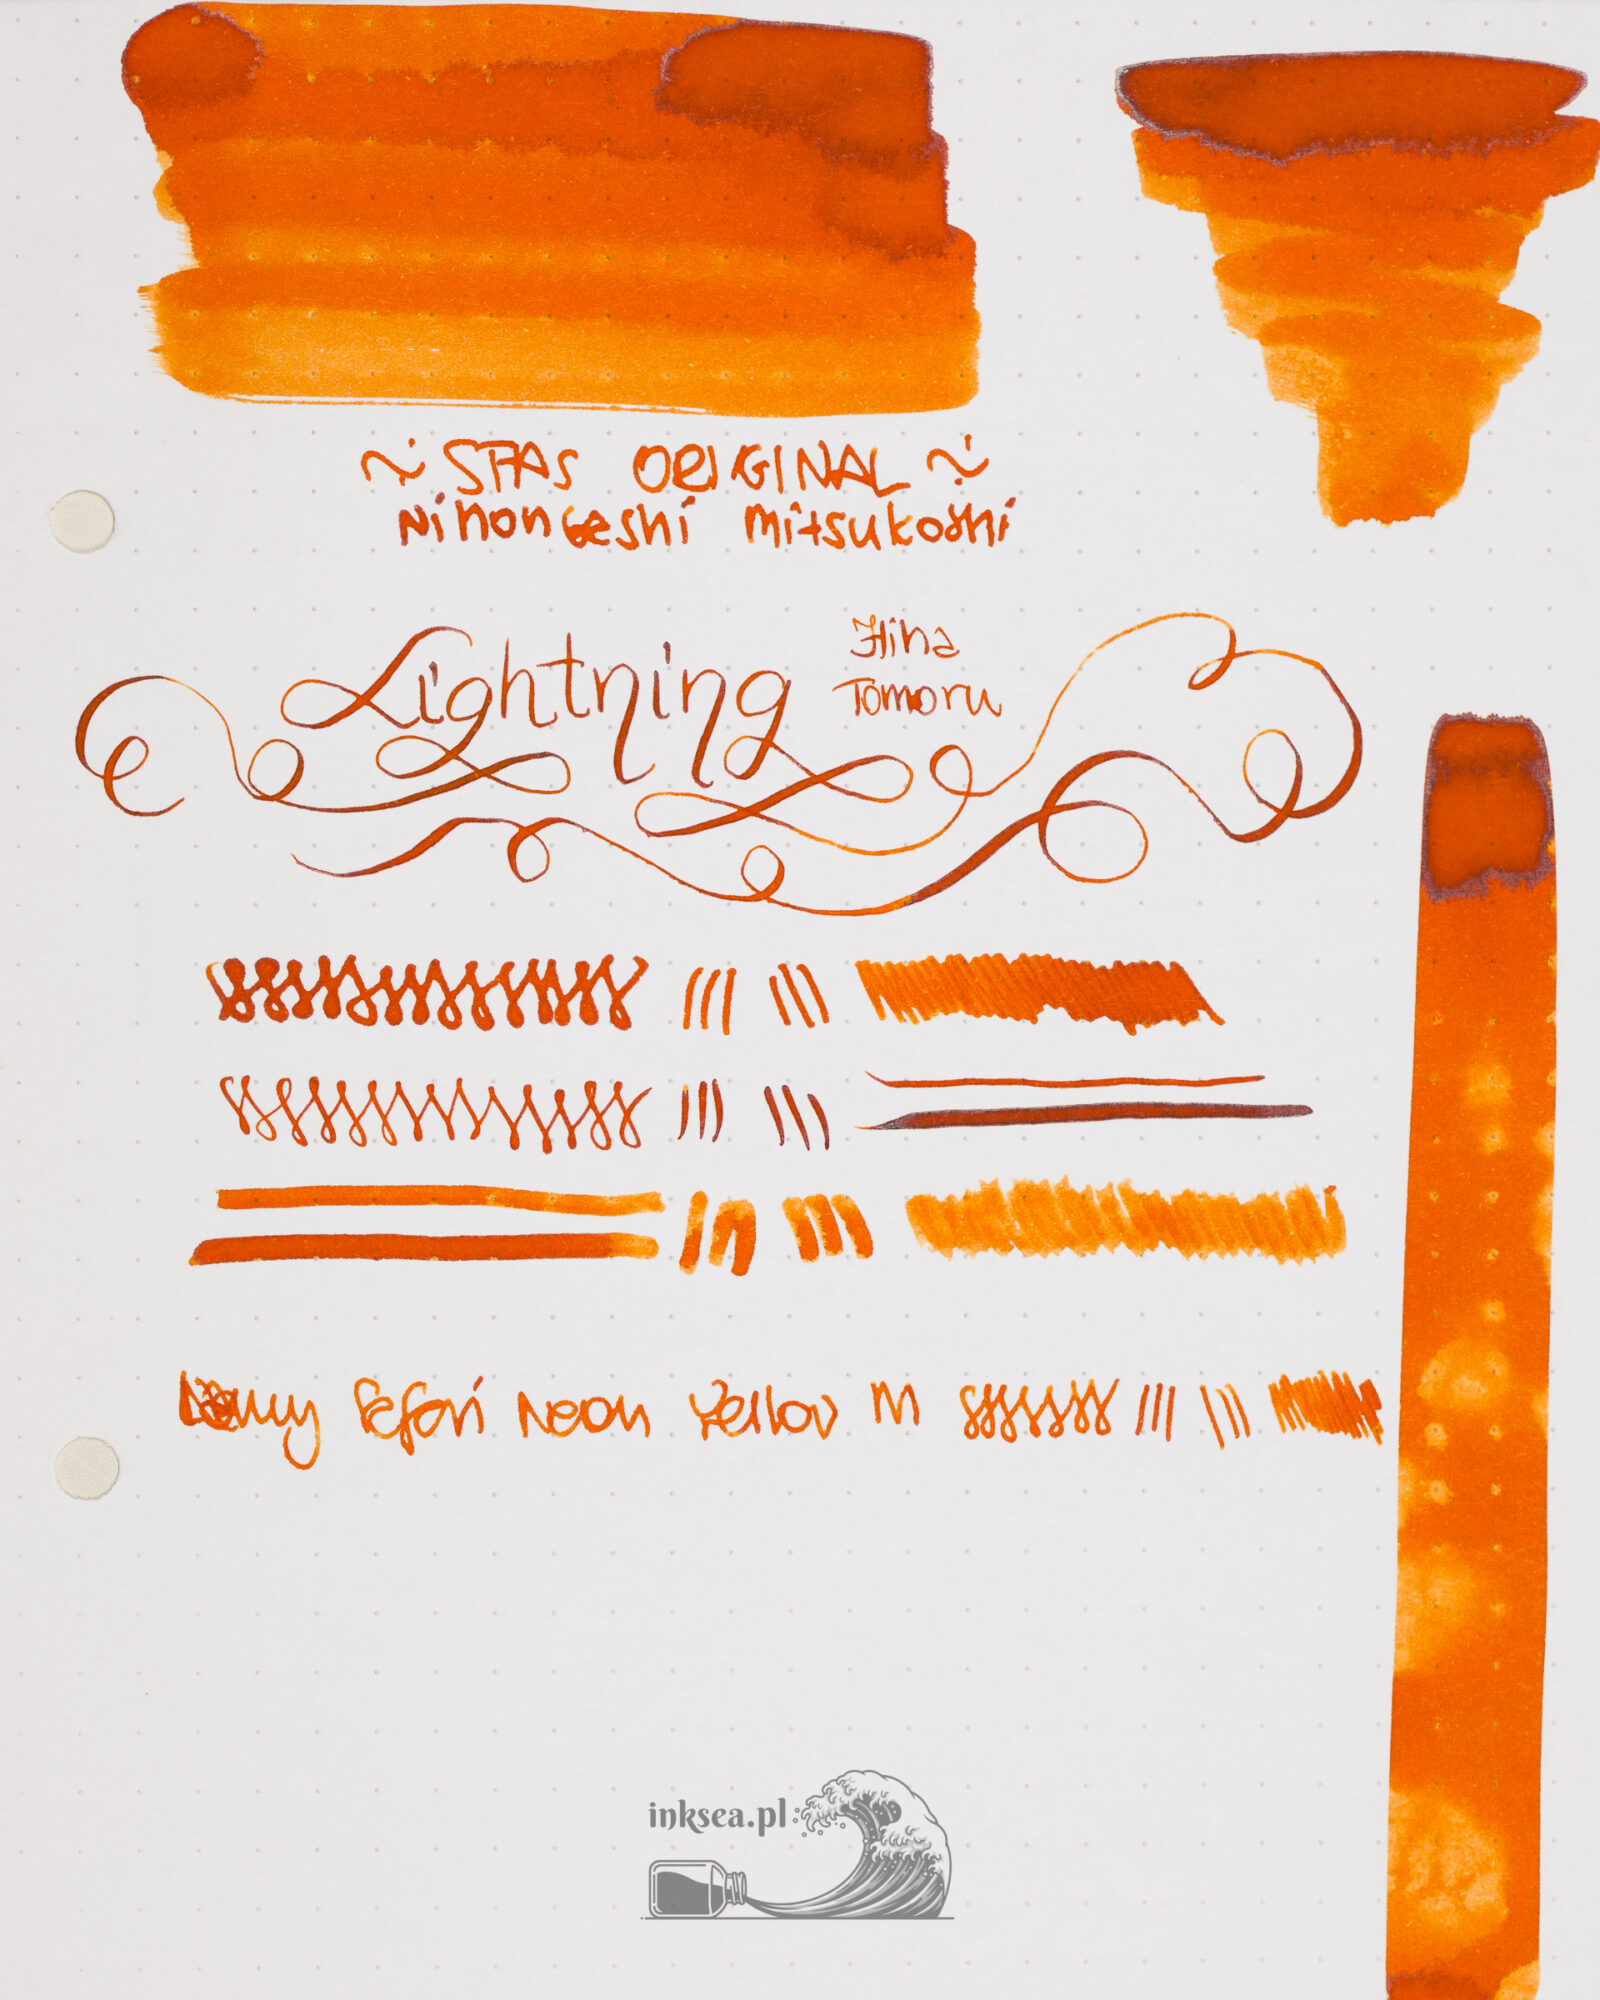 ~ STAS ORIGINAL ~
Nihonbashi Mitsukoshi
Lightning
Hina
Tomoru
Lamy Safari Neon Yellow M
inksea.pl